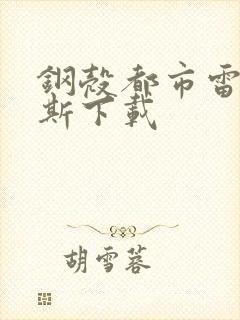 鋼殼都市雷
斯下載
胡雪蓉